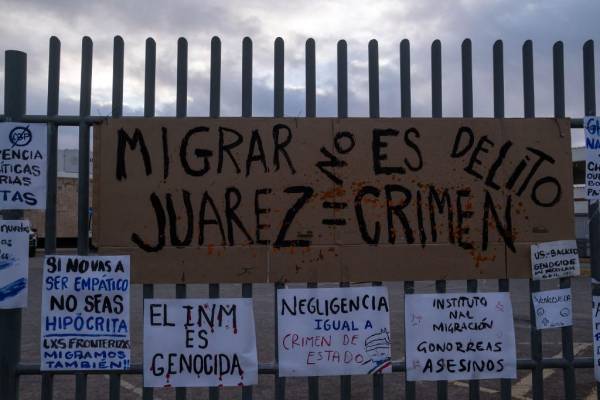 MIGRAR NO ES DELITO
JUAREZ = CRIMEN
ENCIA
POLÍTICAS
RIAS
TAS
SI NO VAS A
SER EMPÁTICO
NO SEAS
HIPÓCRITA
LXS FRONTERIZXS
MIGRAMOS
TAMBIÉN!!
EL INM
ES
GENOCIDA
NEGLIGENCIA
IGUAL A
CRIMEN DE
ESTADO
INSTITUTO
NAL
MIGRACIÓN
GONORREAS
ASESINOS
US-BACKED
GENOCIDE